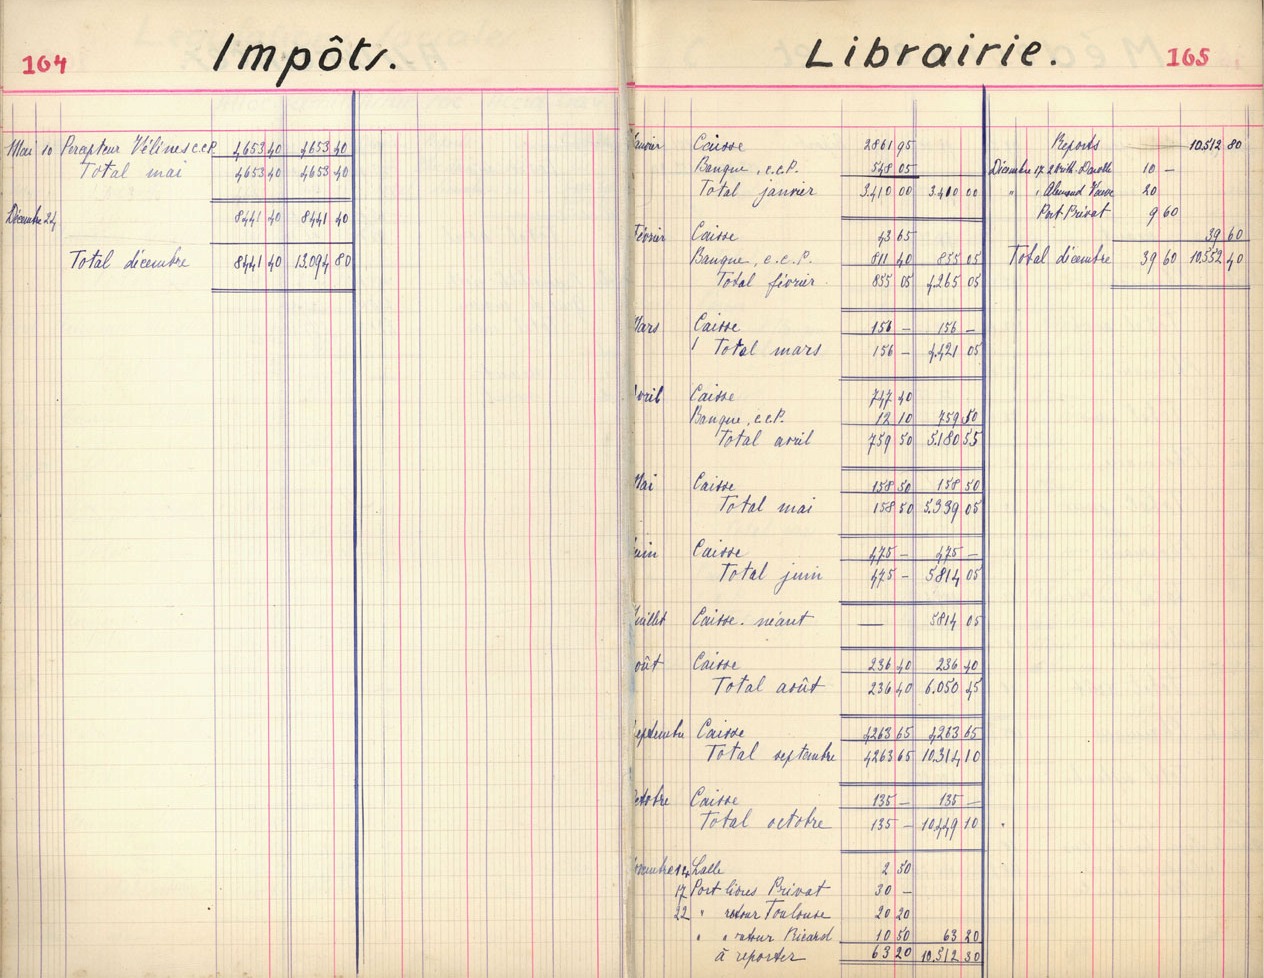 164
Impôts.
Mai 10 Percepteur Vélines c.c.P. 4653 40 4653 40
Total mai 4653 40 4653 40
Décembre 24 8441 40 8441 40
Total décembre 8441 40 13.094 80
Librairie.
165
Caisse 2861 95
Banque, c.c.P. 548 05
Total janvier 3.410 00 3.410 00
Février Caisse 43 65
Banque, c.c.P. 811 40 855 05
Total février 855 05 4.265 05
Mars Caisse 156 – 156 –
Total mars 156 – 4.421 05
Avril Caisse 747 40
Banque, c.c.P. 12 10 759 50
Total avril 759 50 5.180 55
Mai Caisse 158 50 158 50
Total mai 158 50 5.339 05
Juin Caisse 475 – 475 –
Total juin 475 – 5814 05
Juillet Caisse. néant — 5814 05
Août Caisse 236 40 236 40
Total août 236 40 6.050 45
Septembre Caisse 4263 65 4263 65
Total septembre 4263 65 10.314 10
Octobre Caisse 135 – 135 –
Total octobre 135 – 10.449 10
14 Lalle 2 50
17 Port livres Privat 30 –
22 " retour Toulouse 20 20
" " retour Ricard 10 50 63 20
à reporter 63 20 10.512 30
Reports 10.512 80
Décembre 17 10 –
" 20
Port Privat 9 60
39 60
Total décembre 39 60 10.552 40